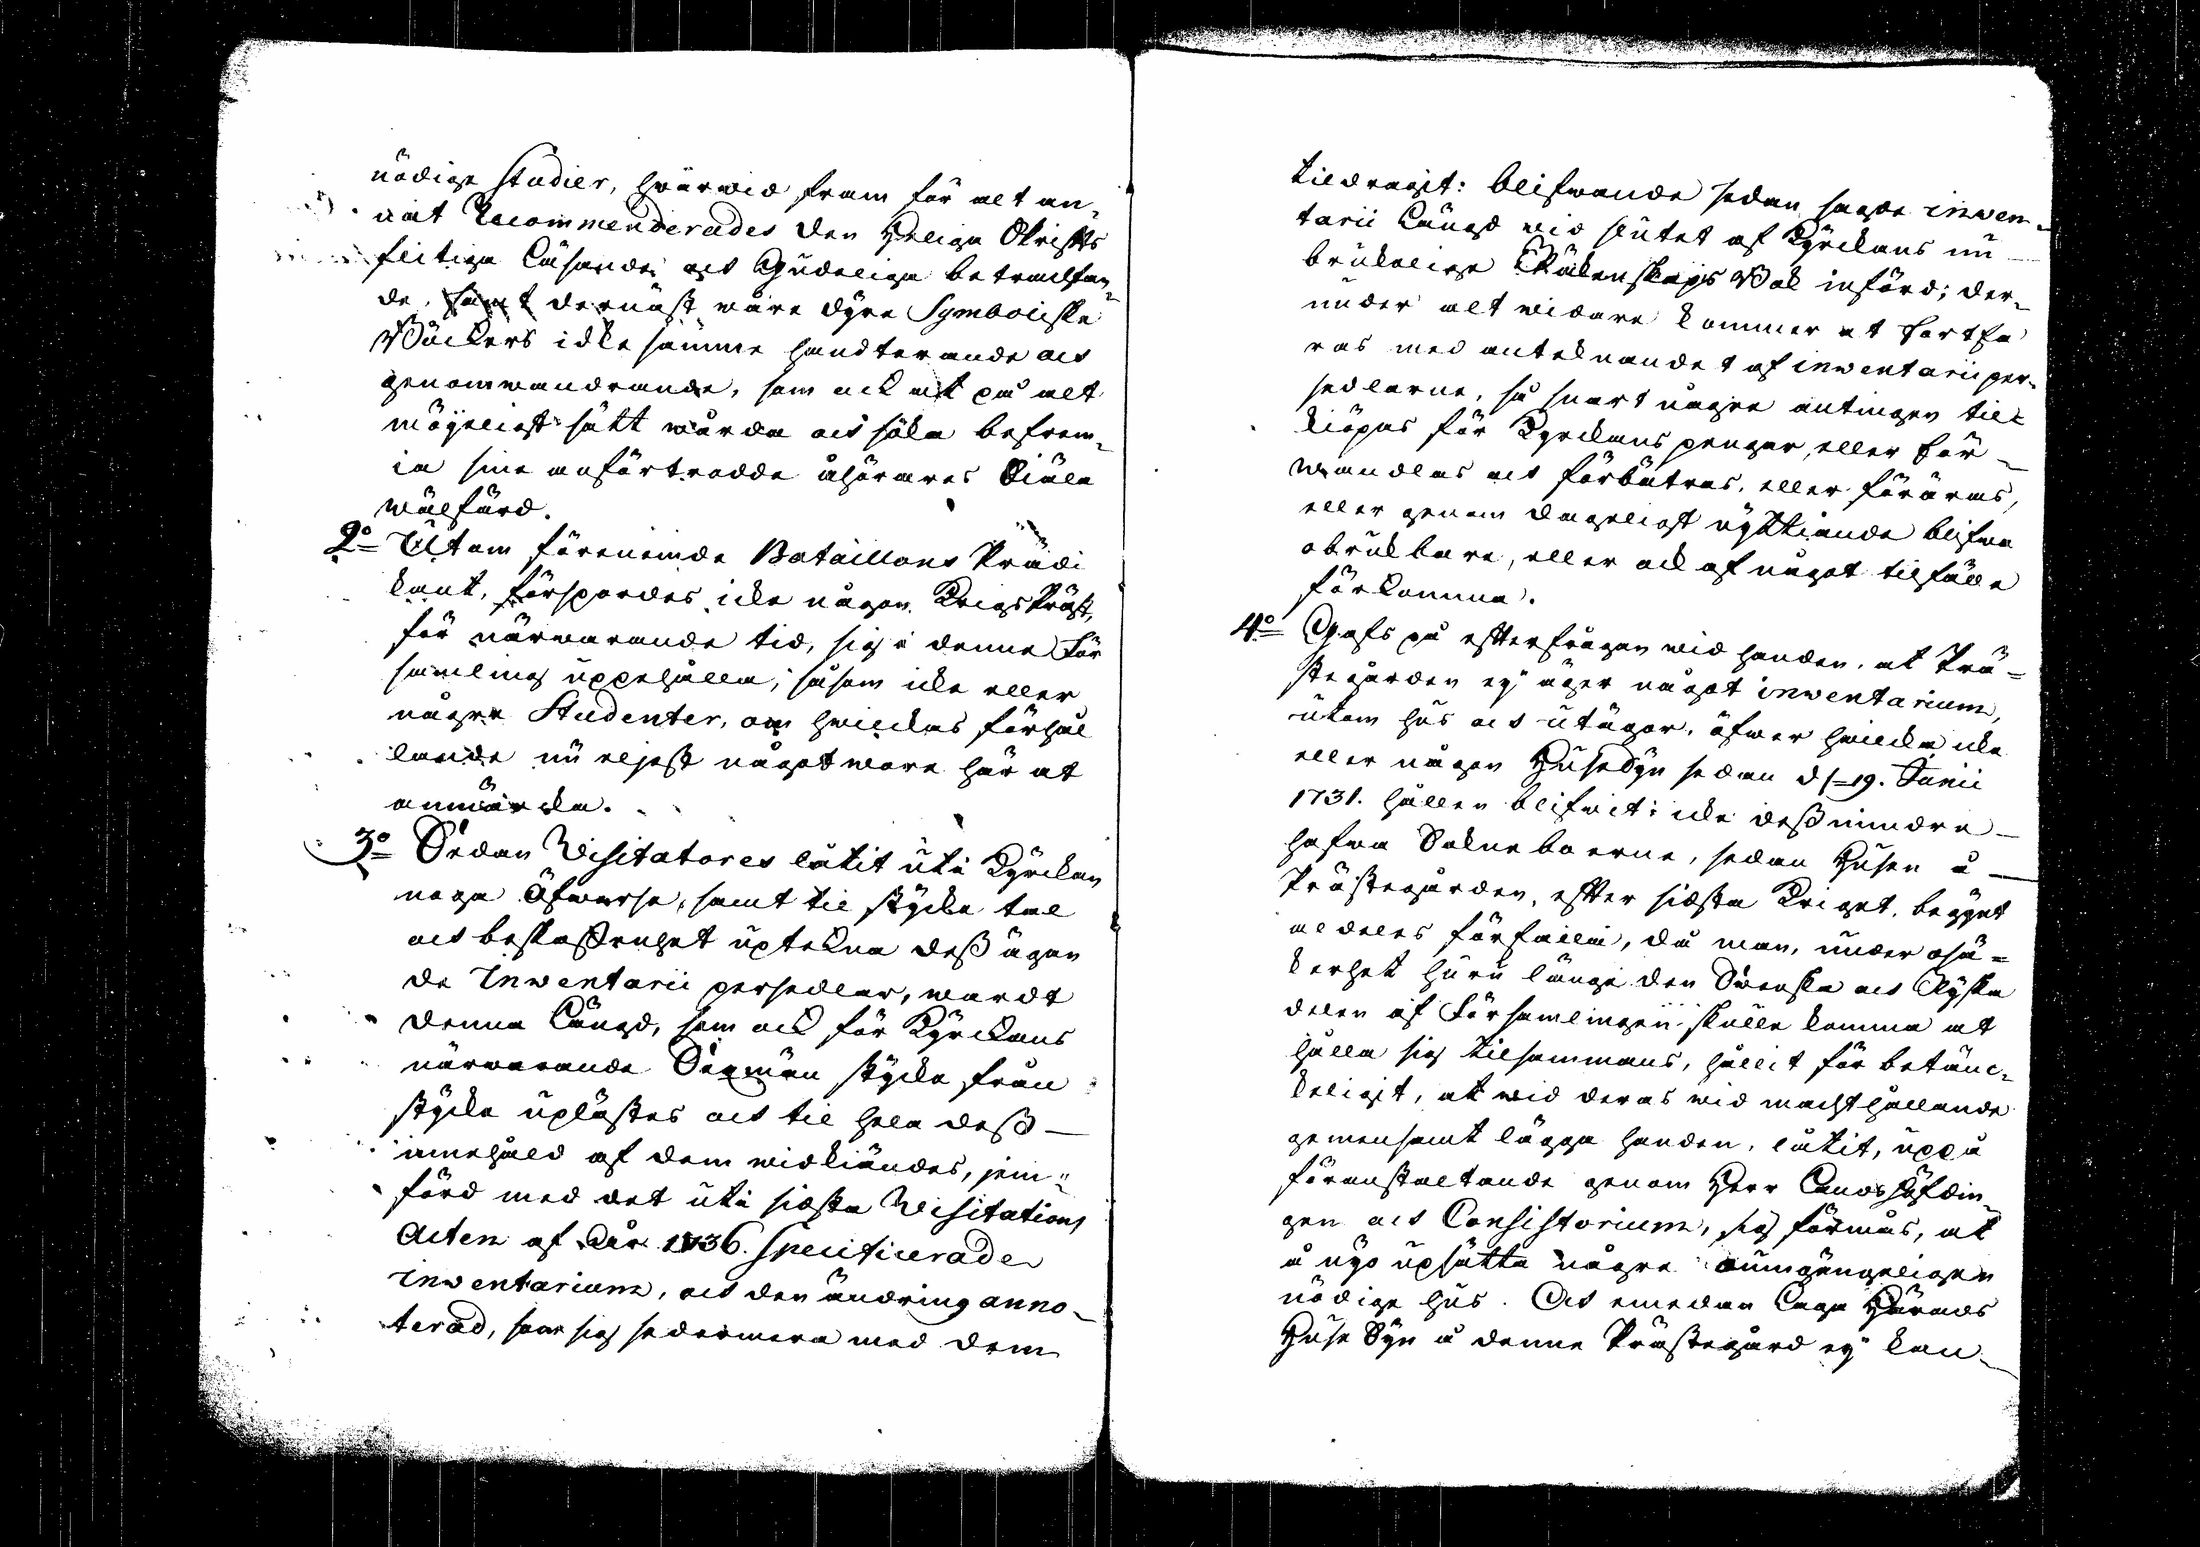 nödige studier, hwarwid fram för alt an-
nat Recommenderades den Heliga Skrifts
flitiga läsande och Gudeliga betrachtan-
de, samt dernäst wåre dyra Symboliska
Böckers idkesamme handterande och
genomwandrande, som ock att på alt
möijeligst sätt wårda och söka befrem-
ia sine anförtrodde åhörares Siäla
wälfärd.
2o Utom förenemde Bataillons Prädi
kant, förspordes icke någon Krigs Präst,
för närwarande tid, sig i denne För
samling uppehålla; såsom icke eller
någre Studenter, om hwilckas förhål
lande nu eljest något wore här at
anmärcka.
3o Sedan Visitatores låtit uti Kyrckan
noga öfwerse, samt til stycke tal
och beskaffenhet uptekna dess ägan
de Inventarii persedlar, wardt
denna Längd, som ock för Kyrckans
närwarande Sexmän stycke från
stycke uplästes och til hela dess
innehåld af dem widkiändes, jem-
förd med det uti sidsta Visitations
Acten af år 1736. Specificerade
inventarium, och den ändring anno-
terad, som sig sedermera med dem
tildragit: blifwande sedan sagde inwen-
tarii Längd wid slutet af Kyrckans nu
brukelige Räkenskaps Bok införd; der-
under alt widare kommer at fortfa
ras med antecknandet af inventarii per-
sedlarne, så snart någre antingen til-
kiöpas för Kyrckans pengar, eller för-
wandlas och förbätras, eller föräras,
eller genom dageligt nyttiande blifwa
obrukbare, eller ock af något tilfälle
förkomma.
4o Gafs på efterfrågan wid handen, at Prä-
stegården ey äger något inventarium,
utom hus och utägor, öfwer hwilcka icke
eller någon Husesyn sedan d. 19. Junii
1731. hållen blifwit: icke dessmindre
hafwa Sokneboerne, sedan Husen å
Prästegården, efter sidsta Kriget, begynt
aldeles förfalla, då man, under osä-
kerhet huru länge den Swenska och Ryska
delen af Församlingen skulle komma at
hålla sig tilsammans, hållit för betänc-
keligit, at wid deras wid macht hållande
gemensamt lägga handen, låtit, uppå
föranstaltande genom Herr Landshöfdin
gen och Consistorium, sig förmås, at
å nyo upsätta någre oumgängeligen
nödige hus. Och emedan Laga Härads
Huse Syn å denne Prästegård ey kan